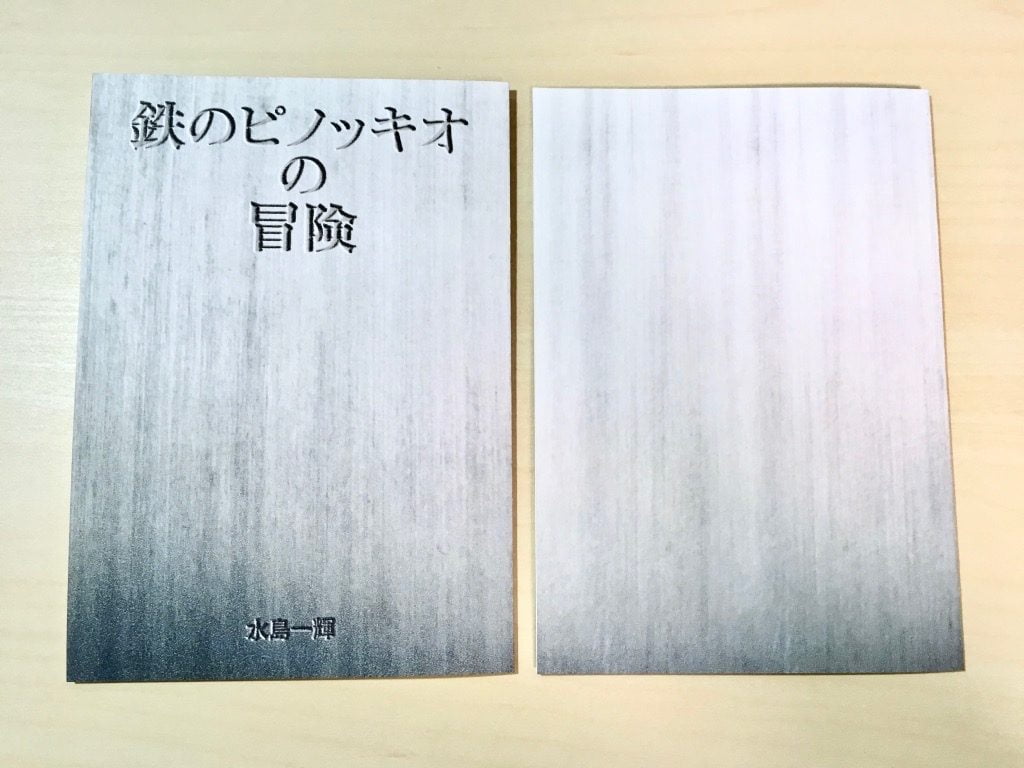 鉄のピノッキオ
の
冒険
水島一輝